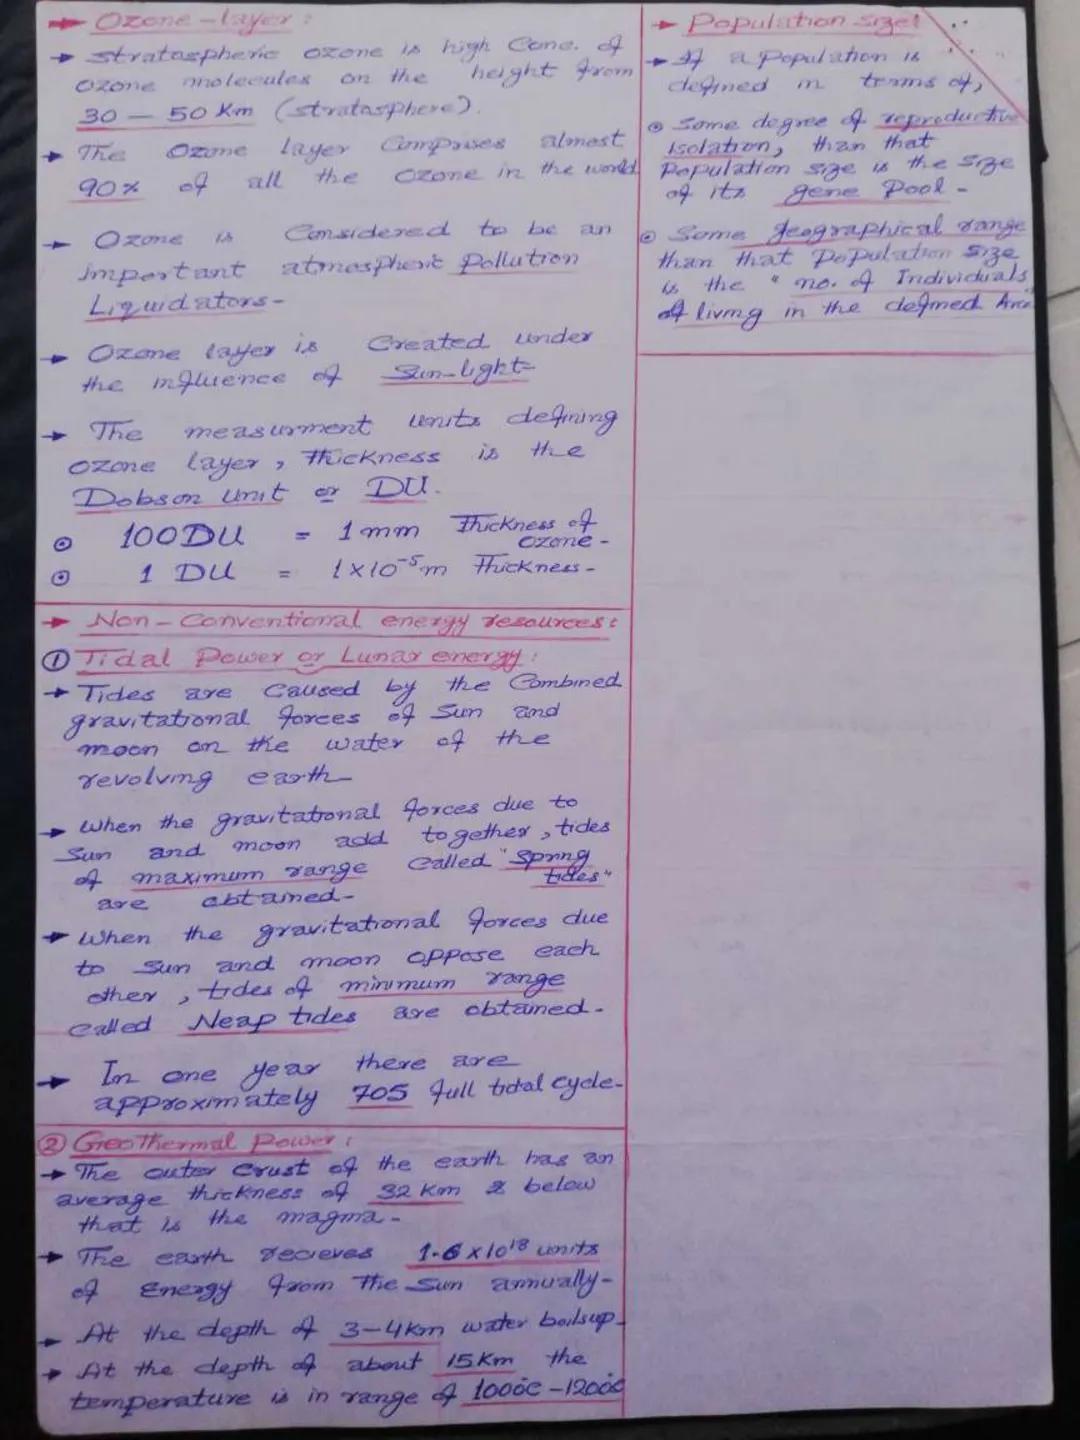 → Ozone-layer:
→ stratospheric ozone is high Conc. of
ozone molecules on the height from
30 – 50 Km (stratosphere).
→ The Ozone layer Comprises almost
90% of all the Ozone in the world
→ Ozone is Considered to be an
important atmospheric pollution
Liquidators-
→ Ozone layer is Created under
the influence of Sun-light-
→ The measurment units defining
ozone layer, thickness is the
Dobson unit or DU.
⊙ 100DU = 1mm Thickness of
ozone-
⊙ 1 DU = 1×10⁻⁵m Thickness-
→ Non-Conventional energy resources:
① Tidal Power or Lunar energy:
→ Tides are Caused by the Combined
gravitational forces of Sun and
moon on the water of the
revolving earth-
→ When the gravitational forces due to
Sun and moon add together, tides
of maximum range Called "Spring
tides"
are obtained-
→ When the gravitational forces due
to Sun and moon oppose each
other, tides of minimum range
Called Neap tides are obtained.
→ In one year there are
approximately 705 full tidal Cycle-
② GeoThermal Power:
→ The outer Crust of the earth has an
average thickness of 32 Km & below
that is the magma-
→ The earth recieves 1.6×10¹⁸ units
of Energy from The Sun annually-
→ At the depth of 3-4km water boilsup-
→ At the depth of about 15Km the
temperature is in range of 1000°C-1200°C
→ Population size:
→ If a population is
defined in terms of,
⊙ Some degree of reproductive
Isolation, than that
Population size is the size
of its gene Pool-
⊙ Some geographical range
than that Population size
is the "no. of Individuals
of living in the defined Area